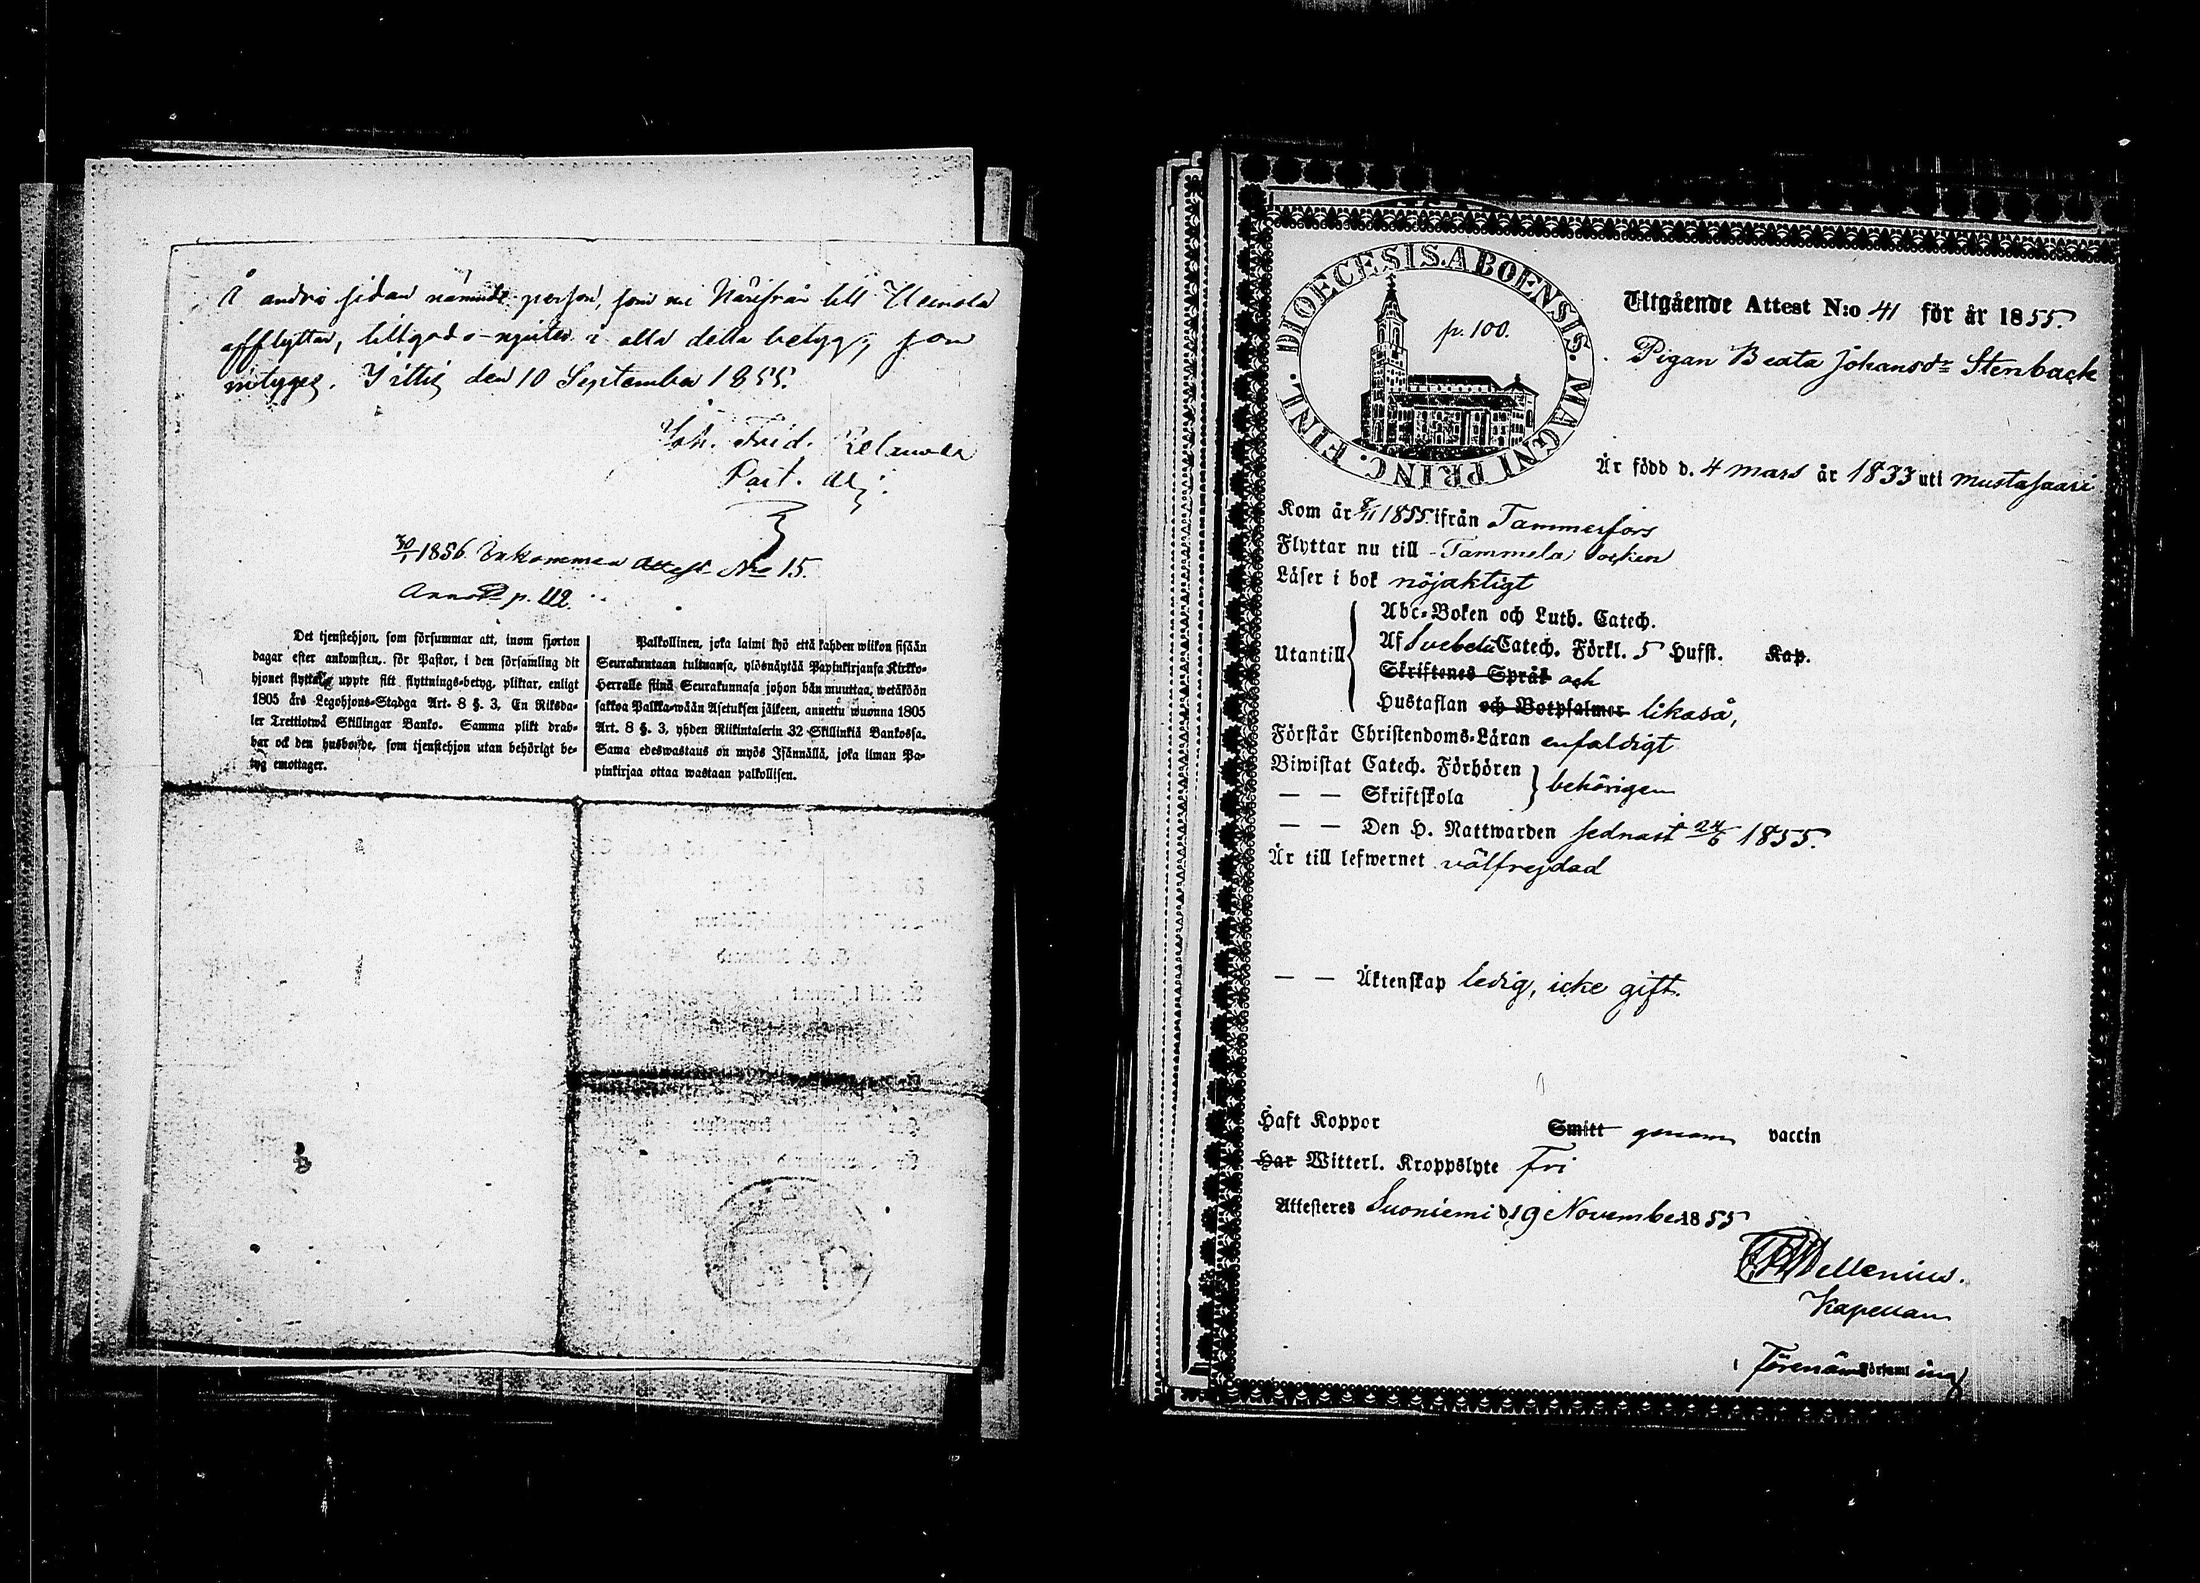 Å andra sidan nämnde person, som nu härifrån till
afflyttar, i alla detta betyg, som
intygas. Jittis den 10 September 1855.
Joh. Frid.
Past. Adj.
30/1 1856 Inkommen Attest No 15.
p. 112.
Det tjenstehjon, som försummar att, inom fjorton
dagar efter ankomsten, för Pastor, i den församling dit
hjonet flyttat, uppte sitt flyttnings-betyg, pliktar, enligt
1805 års Legohjons-Stadga Art. 8 §. 3, En Riksda-
ler Trettiotwå Skillingar Banko. Samma plikt drab-
bar ock den husbonde, som tjenstehjon utan behörigt be-
tyg emottager.
Palkollinen, joka laimi lyö että kahden wiikon sisään
Seurakuntaan tultuansa, ylösnäytää Papinkirjansa Kirkko-
Herralle siinä Seurakunnasa johon hän muuttaa, wetäköön
sakkoa Palkka-wään Asetuksen jälkeen, annettu wuonna 1805
Art. 8 §. 3, yhden Riikintalerin 32 Skillinkiä Bankossa.
Sama edeswastaus on myös Isännällä, joka ilman Pa-
pinkirjaa ottaa wastaan palkollisen.
DIOECESIS. ABOENSIS. MAGNI PRINC. FINL.
p. 100.
Utgående Attest N:o 41 för år 1855.
Pigan Beata Johansdr Stenback
Är född d. 4 mars år 1833 uti Mustasaari
Kom år 8/11 1855. ifrån Tammerfors
Flyttar nu till Tammela socken
Läser i bok nöjaktigt
Utantill
Abc-Boken och Luth. Catech.
Af Svebelii Catech. Förkl. 5 Hufst. Kap.
Skriftenes Språk och
Hustaflan och Botpsalmer likaså,
Förstår Christendoms-Läran enfaldigt
Biwistat Catech. Förhören
— — Skriftskola
behörigen
— — Den H. Nattwarden sednast 24/6 1855.
Är till lefwernet välfrejdad
— — Äktenskap ledig, icke gift.
Haft Koppor Smitt genom vaccin
Har Witterl. Kroppslyte Fri
Attesteres Suoniemi d. 19 November 1855
Wellenius.
Kapellan